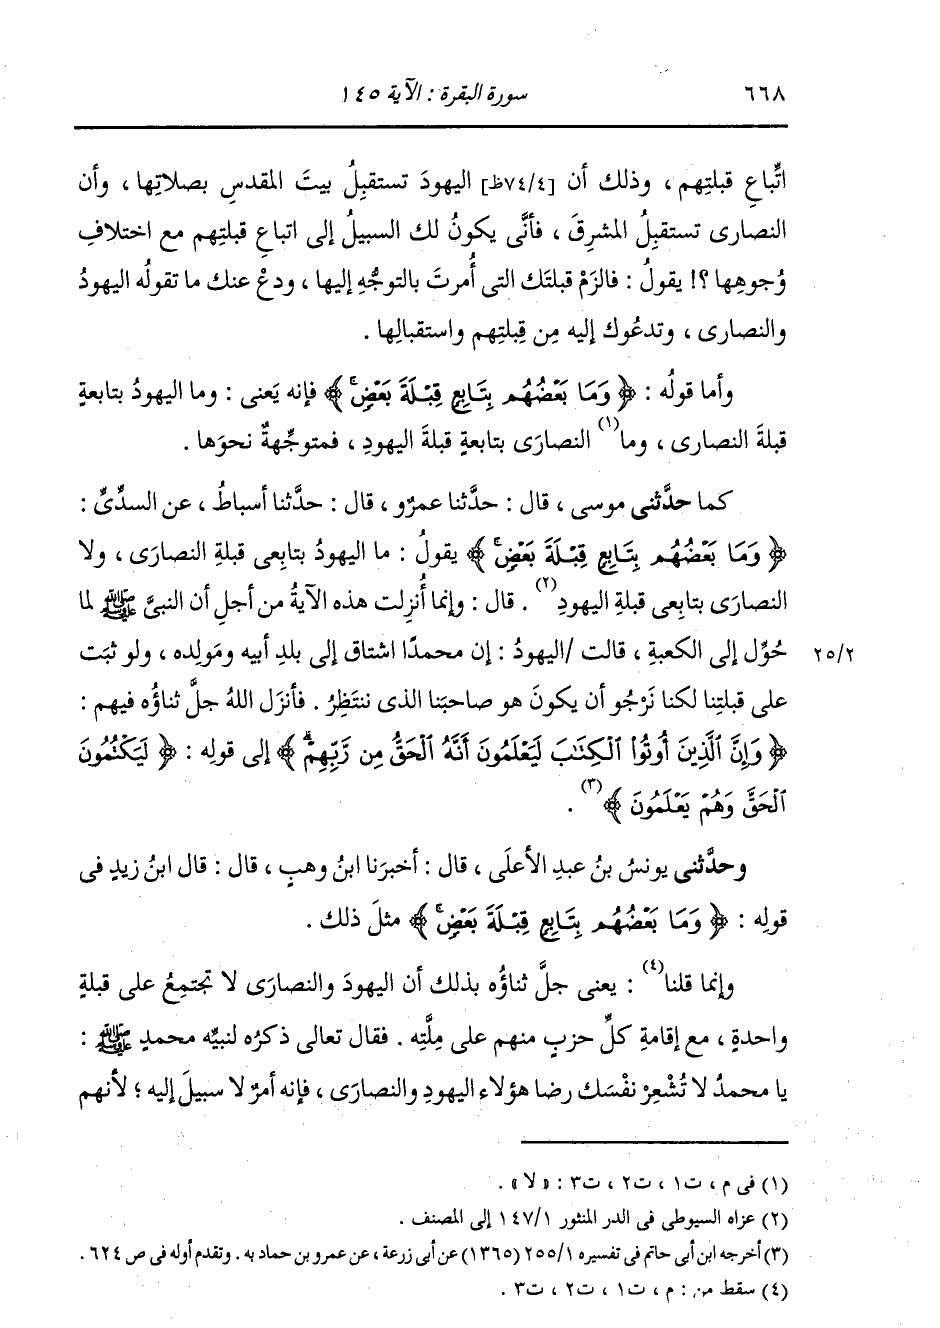 ٦٦٨ سورة البقرة : الآية ١٤٥
اتِّباعِ قبلتِهم ، وذلك أن [٧٤/٤ظ] اليهودَ تستقبِلُ بيتَ المقدسِ بصلاتِها ، وأن
النصارى تستقبِلُ المشرِقَ ، فأنَّى يكونُ لك السبيلُ إلى اتباعِ قبلتِهم مع اختلافِ
وُجوهِها ؟! يقولُ : فالزَمْ قبلتَك التى أُمرتَ بالتوجُّهِ إليها ، ودعْ عنك ما تقولُه اليهودُ
والنصارى ، وتدعُوك إليه مِن قِبلتِهم واستقبالِها .
وأما قولُه : ﴿ وَمَا بَعْضُهُم بِتَابِعٍ قِبْلَةَ بَعْضٍ ﴾ فإنه يَعنى : وما اليهودُ بتابعةٍ
قبلةَ النصارى ، وما(١) النصارَى بتابعةٍ قبلةَ اليهودِ ، فمتوجِّهةٌ نحوَها .
كما حدَّثنى موسى ، قال : حدَّثنا عمرٌو ، قال : حدَّثنا أسباطُ ، عن السدِّىِّ :
﴿ وَمَا بَعْضُهُم بِتَابِعٍ قِبْلَةَ بَعْضٍ ﴾ يقولُ : ما اليهودُ بتابِعى قبلةِ النصارَى ، ولا
النصارَى بتابِعى قبلةِ اليهودِ(٢) . قال : وإنما أُنزِلت هذه الآيةُ من أجلِ أن النبىَّ ﷺ لما
حُوِّل إلى الكعبةِ ، قالت /اليهودُ : إن محمدًا اشتاق إلى بلدِ أبيه ومَولِده ، ولو ثبَت ٢٥/٢
على قبلتِنا لكنا نَرْجُو أن يكونَ هو صاحبَنا الذى ننتَظِرُ . فأنزَل اللهُ جلَّ ثناؤُه فيهم :
﴿ وَإِنَّ الَّذِينَ أُوتُوا الْكِتَابَ لَيَعْلَمُونَ أَنَّهُ الْحَقُّ مِن رَّبِّهِمْ ﴾ إلى قولِه : ﴿ لَيَكْتُمُونَ
الْحَقَّ وَهُمْ يَعْلَمُونَ ﴾(٣) .
وحدَّثنى يونسُ بنُ عبدِ الأعلَى ، قال : أخبرَنا ابنُ وهبٍ ، قال : قال ابنُ زيدٍ فى
قولِه : ﴿ وَمَا بَعْضُهُم بِتَابِعٍ قِبْلَةَ بَعْضٍ ﴾ مثلَ ذلك .
وإنما قلنا(٤) : يعنى جلَّ ثناؤُه بذلك أن اليهودَ والنصارَى لا تجتمِعُ على قبلةٍ
واحدةٍ ، مع إقامةِ كلِّ حزبٍ منهم على مِلَّتِه . فقال تعالى ذكرُه لنبيِّه محمدٍ ﷺ :
يا محمدُ لا تُشْعِرْ نفْسَك رضا هؤلاء اليهودِ والنصارَى ، فإنه أمرٌ لا سبيلَ إليه ؛ لأنهم
(١) فى م ، ت١ ، ت٢ ، ت٣ : « لا » .
(٢) عزاه السيوطى فى الدر المنثور ١٤٧/١ إلى المصنف .
(٣) أخرجه ابن أبى حاتم فى تفسيره ٢٥٥/١ (١٣٦٥) عن أبى زرعة ، عن عمرو بن حماد به . وتقدم أوله فى ص ٦٢٤ .
(٤) سقط من : م ، ت١ ، ت٢ ، ت٣ .